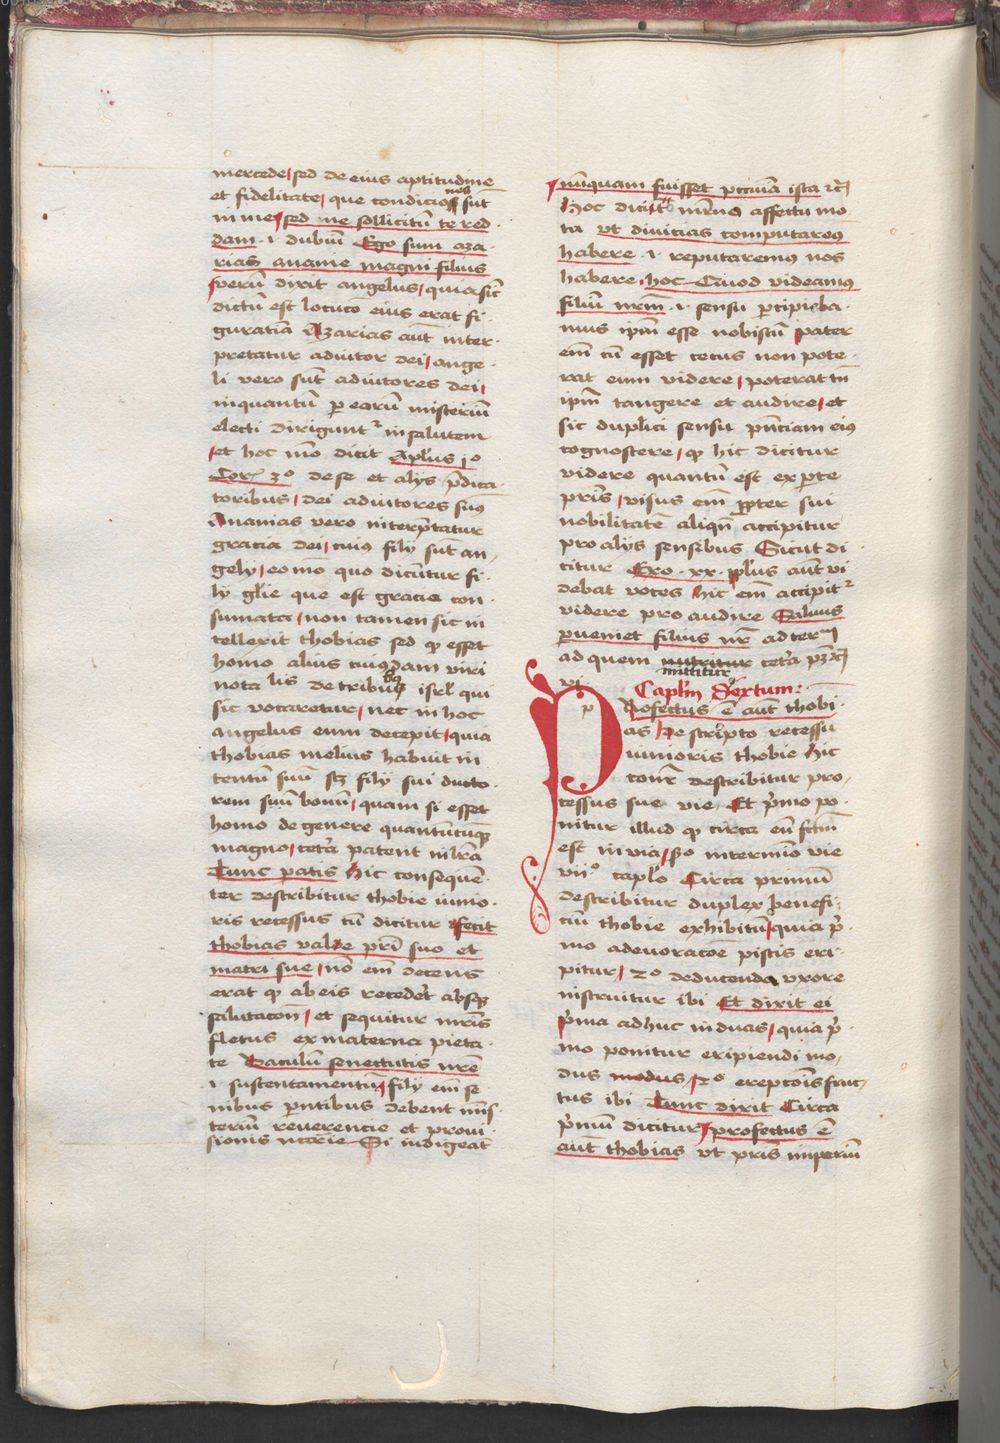 mercede sed de eius aptitudine
et fidelitate que condicioneſ nob sūt
in me sed ne sollicitū te red
dam · i dubiū Ego sum aza·
rias ananie magni filius
verū dixit angelus quia sic̄
dictū est locuco͞ eius erat fi·
guratia Azarias aūt inter·
pretatur adiutor dei ange·
li vero sūt adiutores dei
inquantū p earū misteriū
electi dirigunt² in salutem
et hoc mō dicit Apl'us j°
Cor̄ 3° de se et alijs p̄dica·
toribus dei adiutores sum⁹
Ananias vero interp̄tatur
gracia dei cui⁹ filij sūt an·
gelij eo mo quo dicūntur fi·
lij gl'ie que est gracia con·
sumata non tamen sic in
tellexit thobias sed qꝫ esset
homo alius cui⁹dam viri
nota lis de tribub⁹ isrl' qui
sic vocaretur nec in hoc
angelus eum decepit quia
thobias melius habuit in
tentū suū scꝫ filij sui ducto·
rem suū bonū quam si esset
homo de genere quantūcūqꝫ
magno cet'a patent in lr̄a
Tunc patis Hic consequēn·
ter describitur thobie iunio·
ris recessus cū dicitur fecit
thobias vale pr̄i suo et
matri sue nō em̄ decens
erat qꝫ ab eis recedet absqꝫ
salutacon̄ et sequitur mr̄is
fletus ex materna pieta·
te Baculū senectutis nr̄e
·i· sustentamentū filij em̄ se
nibus pn̄tibus debent mīs·
teriū reuerencie et proui·
sionis nc̄arie Si indigeat
nūquam fuisset pccūia ista ⁊c̄
Hoc dicit mr̄no affectu mo
ta vt diuicias computarem⁹
habere · i reputaremus nos
habere hoc Quod videamus
filiū nr̄m · i· sensu p̄cipieba·
mus ipm̄ esse nobiscū pater
em̄ cū esset cecus non pote·
rat eum videre poterat tn̄
ipm̄ tangere et audire et
sic duplici sensu pn̄ciam ei⁹
cognoscere qꝫ hic dicitur
videre quantū est ex parte
pr̄is visus em̄ pp̄ter sui
nobilitatē aliqn̄ accipitur
pro alijs sensibus Sicut di
citur Exo · xx· pp̄lus aūt vi
debat voces hic em̄ accipit²
videre pro audire Saluus
pueniet filius nr̄ ad term̄
ad quem nutritur mittitur cet'a pꝫ ⁊c̄
vi Capl'm Sextum:
Profectus ē aūt thobi·
as Descripto recessu
iunioris thobie hic
conr̄ describitur pro,
cessus sue vie Et p̄mo po·
nitur illud qꝫ circa eū fc̄m
est in via s'o in termīo vie
viij° caplo Circa primū
describitur duplex benefi·
ciū thobie exhibitū quia p̄·
mo a deuoracoē piscis eri·
pitur 2° de ducenda vxore
instruitur ibi Et dixit ei
p̄ma adhuc in duas quia p̄·
mo ponitur eripiendi mo,
dus modus 2° erepcōis fruc,
tus ibi Tunc dixit Circa
p̄mū dicitur profectus ē
aūt thobias vt pr̄is imperiū